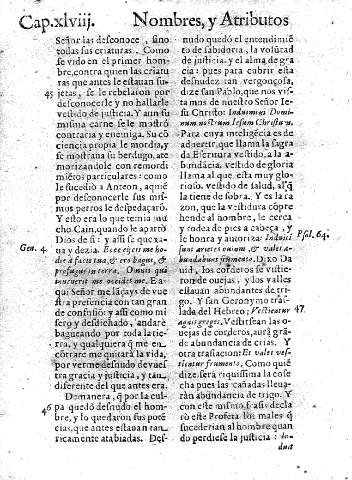 Cap.xlviij. Nombres, y Atributos
Señor las desconoce, sino
todas sus criaturas. Como
se vido en el primer hom-
bre, contra quien las criatu
ras que antes le estauan su-
45 jetas, se le rebelaron por
desconocerle y no hallarle
vestido de justicia. Y aun su
misma carne se le mostró
contraria y enemiga. Su cō
ciencia propia le mordia, y
se mostraua su berdugo, ate-
morizandole con remordi-
miētos particulares: como
le sucedio a Anteon, a quiē
por desconocerle sus mis-
mos perros le despedaçarō.
Y esto era lo que temia mu
cho Cain, quando le apartó
Dios de si: y assi se que xa-
Gen. 4. ua y dezia. Ecce ejcis me ho-
die à facie tua, & ero bagus, &
profugus in terra. Omnis qui
inuenerit me occidet me. E a
qui Señor me lāçays de vue
stra presencia con tan gran
de confusiō: y assi como mi
sero y desdichado, andarè
bagueando por toda la tie-
rra, y qualquiera q̃ me en-
cōtrare me quitará la vida,
por verme desnudo de vues
tra gracia y justicia, y tan
diferente del que antes era.
Demanera, q̃ por la cul-
46 pa quedó desnudo el hom-
bre, y lo quedaron sus po-
ēcias, que antes estauan tan
ricamente atabiadas. Des-
nudo quedó el entendimiē
to de sabiduria, la volūtad
de justicia, y el alma de gra
cia: pues para cubrir esta
desnudez tan vergonçosa,
dize san Pablo, que nos vis
tamos de nuestro Señor Ie-
su Christo: Induimini Domi-
num nostrum Iesum Christum.
Para cuya inteligēcia es de
aduertir, que llama la sagra
da Escritura vestido, a la a-
bundācia. vestido de gloria
llama al que, esta muy glo-
rioso. vestido de salud, al q̃
la tiene de sobra. Y es la ra
zon, que la vestidura cōpre
hende al hombre, le cerca
y rodea de pies a cabeça, y
le honra y autoriza: Induti Psal. 64.
sunt arietes ouium, & valles a-
bundabunt frumento. Dixo Da
uid, los corderos se vistie-
ron de ouejas, y los valles
estauan abundantes de tri-
go. Y san Geronymo tras-
lada del Hebreo: Vestientur 47.
agnis greges. Vestirsean las o-
uejas de corderos, aurá grā-
de abundancia de crias. Y
otra traslacion: Et valles ves-
tientur frumento. Como quiē
dize: Será riquissima la cose
cha pues las cañadas lleua-
ràn abundancia de trigo. Y
con este mismo frasi declarò
este Profeta los males q̃
sucederian al hombre quan
do perdiesse la justicia: In-
dua